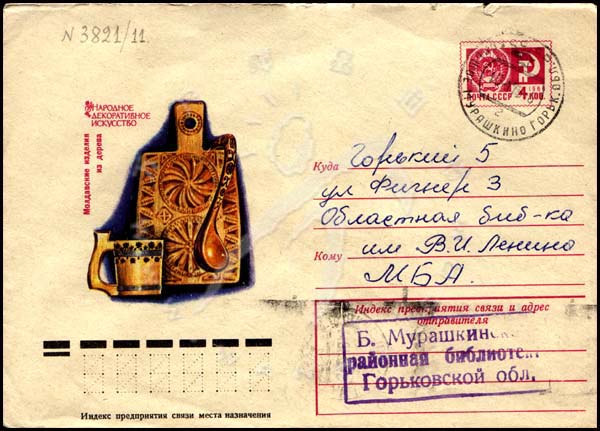 N 3821/11.
НАРОДНОЕ
ДЕКОРАТИВНОЕ
ИСКУССТВО
Молдавские изделия
из дерева
ПОЧТА СССР 4 КОП.
1966
МУРАШКИНО ГОРЬК. ОБЛ.
Куда Горький 5
ул Фигнер 3
Областная биб-ка
им В.И. Ленина
Кому
МБА.
Индекс предприятия связи и адрес
отправителя
Б. Мурашкинс
районная библиоте
Горьковской обл.
Индекс предприятия связи места назначения